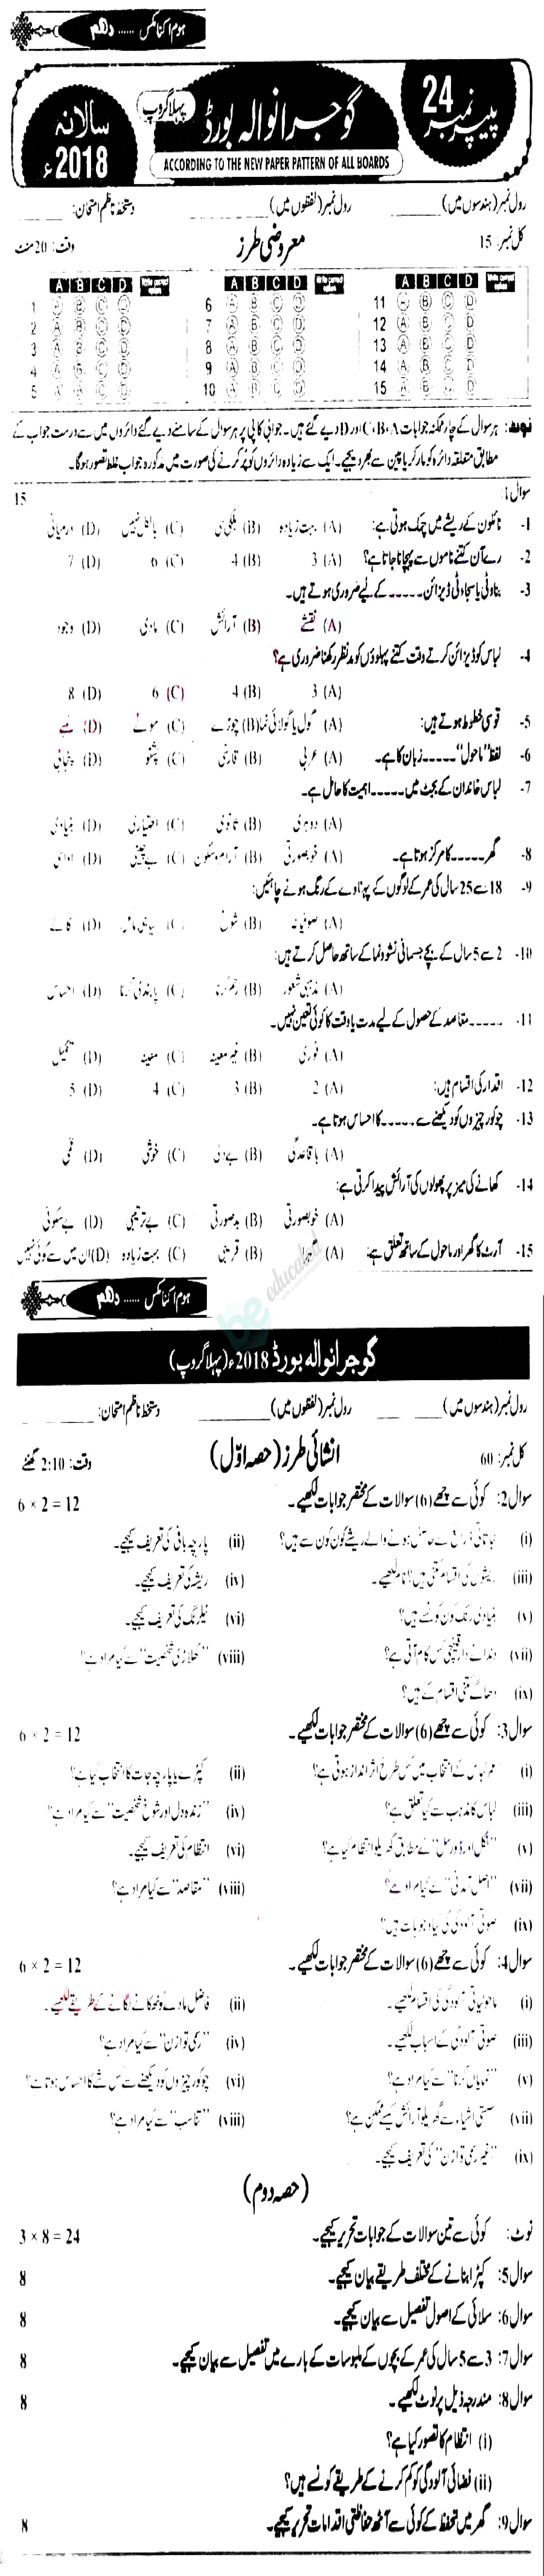 ہوم اکنامکس ...... دہم
پیپر نمبر 24
گوجرانوالہ بورڈ
پہلا گروپ
سالانہ 2018ء
ACCORDING TO THE NEW PAPER PATTERN OF ALL BOARDS
رول نمبر (ہندسوں میں) ______ رول نمبر (لفظوں میں) ______ دستخط ناظم امتحان: ______
کل نمبر: 15 معروضی طرز وقت: 20 منٹ
A B C D A B C D A B C D
1 A B C D 6 A B C D 11 A B C D
2 A B C D 7 A B C D 12 A B C D
3 A B C D 8 A B C D 13 A B C D
4 A B C D 9 A B C D 14 A B C D
5 A B C D 10 A B C D 15 A B C D
نوٹ: ہر سوال کے چار ممکنہ جوابات C، B، A اور D دیے گئے ہیں۔ جوابی کاپی پر ہر سوال کے سامنے دیے گئے دائروں میں سے درست جواب کے
مطابق متعلقہ دائرہ کو مارکر یا پین سے بھر دیجیے۔ ایک سے زیادہ دائروں کو پُر کرنے کی صورت میں مذکورہ جواب غلط تصور ہو گا۔
سوال 1: 15
1- نائلون کے ریشے میں چمک ہوتی ہے: (A) بہت زیادہ (B) ہلکی سی (C) بالکل نہیں (D) درمیانی
2- رے آن کتنے ناموں سے پہچانا جاتا ہے؟ (A) 3 (B) 4 (C) 6 (D) 7
3- بناوٹی یا سجاوٹی ڈیزائن ----- کے لیے ضروری ہوتے ہیں۔
(A) نقشے (B) آرائش (C) مادی (D) وجود
4- لباس کو ڈیزائن کرتے وقت کتنے پہلوؤں کو مدنظر رکھنا ضروری ہے؟
(A) 3 (B) 4 (C) 6 (D) 8
5- قوسی خطوط ہوتے ہیں: (A) گول یا گولائی نما (B) چوڑے (C) موٹے (D) لمبے
6- لفظ "ماحول" ----- زبان کا ہے۔ (A) عربی (B) فارسی (C) پشتو (D) پنجابی
7- لباس خاندان کے بجٹ میں ----- اہمیت کا حامل ہے۔
(A) دوہری (B) ثانوی (C) اختیاری (D) بنیادی
8- گھر ----- کا مرکز ہوتا ہے۔ (A) خوبصورتی (B) آرام و سکون (C) بے چینی (D) اداسی
9- 18 سے 25 سال کی عمر کے لوگوں کے پہناوے کے رنگ ہونے چاہئیں:
(A) صوفیانہ (B) شوخ (C) سیاہی مائل (D) کالے
10- 2 سے 5 سال کے بچے جسمانی نشوونما کے ساتھ حاصل کرتے ہیں:
(A) مذہبی شعور (B) رحم کرنا (C) پابندی کرنا (D) احساس
11- ----- مقاصد کے حصول کے لیے مدت یا وقت کا کوئی تعین نہیں۔
(A) فوری (B) غیر معینہ (C) معینہ (D) تکمیل
12- اقدار کی اقسام ہیں: (A) 2 (B) 3 (C) 4 (D) 5
13- چوکور چیزوں کو دیکھنے سے ----- کا احساس ہوتا ہے۔
(A) باقاعدگی (B) بے دلی (C) خوشی (D) غمی
14- کھانے کی میز پر پھولوں کی آرائش پیدا کرتی ہے:
(A) خوبصورتی (B) بدصورتی (C) بے ترتیبی (D) بے سکونی
15- آرٹ کا گھر اور ماحول کے ساتھ تعلق ہے: (A) گہرا (B) قریبی (C) بہت زیادہ (D) ان میں سے کوئی نہیں
be educated
ہوم اکنامکس ...... دہم
گوجرانوالہ بورڈ 2018ء (پہلا گروپ)
رول نمبر (ہندسوں میں) ______ رول نمبر (لفظوں میں) ______ دستخط ناظم امتحان: ______
کل نمبر: 60 انشائی طرز (حصہ اوّل) وقت: 2:10 گھنٹے
سوال 2: کوئی سے چھے (6) سوالات کے مختصر جوابات لکھیے۔ 6 × 2 = 12
(i) نباتاتی ذرائع سے حاصل ہونے والے ریشے کون کون سے ہیں؟ (ii) پارچہ بافی کی تعریف کیجیے۔
(iii) ریشوں کی اقسام کتنی ہیں؟ نام لکھیے۔ (iv) ریشہ کی تعریف کیجیے۔
(v) بنیادی رنگ کون کونسے ہیں؟ (vi) ٹیلرنگ کی تعریف کیجیے۔
(vii) دندانے دار قینچی کس کام آتی ہے؟ (viii) "کھلاڑی شخصیت" سے کیا مراد ہے؟
(ix) دھاگے کتنی اقسام کے ہیں؟
سوال 3: کوئی سے چھے (6) سوالات کے مختصر جوابات لکھیے۔ 6 × 2 = 12
(i) عمر لباس کے انتخاب میں کس طرح اثر انداز ہوتی ہے؟ (ii) کپڑے یا پارچہ جات کا انتخاب کیا ہے؟
(iii) لباس کا مذہب سے کیا تعلق ہے؟ (iv) "زندہ دل اور شوخ شخصیت" سے کیا مراد ہے؟
(v) "نکل اور ڈورسل" کے مطابق گھریلو انتظام کیا ہے؟ (vi) انتظام کی تعریف کیجیے۔
(vii) "اصل آمدنی" سے کیا مراد ہے؟ (viii) "مقاصد" سے کیا مراد ہے؟
(ix) صوتی آلودگی کی کیا وجوہات ہیں؟
سوال 4: کوئی سے چھے (6) سوالات کے مختصر جوابات لکھیے۔ 6 × 2 = 12
(i) ماحولیاتی آلودگی کی اقسام لکھیے۔ (ii) فاضل مادے کو ٹھکانے لگانے کے طریقے لکھیے۔
(iii) صوتی آلودگی کے اسباب لکھیے۔ (iv) "رسمی توازن" سے کیا مراد ہے؟
(v) "نمایاں کرنا" سے کیا مراد ہے؟ (vi) چوکور چیزوں کو دیکھنے سے کس شے کا احساس ہوتا ہے؟
(vii) سستی اشیاء سے گھریلو آرائش کیسے ممکن ہے؟ (viii) "تناسب" سے کیا مراد ہے؟
(ix) "غیر رسمی توازن" کی تعریف کیجیے۔
(حصہ دوم)
نوٹ: کوئی سے تین سوالات کے جوابات تحریر کیجیے۔ 3 × 8 = 24
سوال 5: کپڑا بنانے کے مختلف طریقے بیان کیجیے۔ 8
سوال 6: سلائی کے اصول تفصیل سے بیان کیجیے۔ 8
سوال 7: 3 سے 5 سال کی عمر کے بچوں کے ملبوسات کے بارے میں تفصیل سے بیان کیجیے۔ 8
سوال 8: مندرجہ ذیل پر نوٹ لکھیے۔ 8
(i) انتظام کا تصور کیا ہے؟
(ii) فضائی آلودگی کو کم کرنے کے طریقے کونسے ہیں؟
سوال 9: گھر میں تحفظ کے کوئی سے آٹھ حفاظتی اقدامات تحریر کیجیے۔ 8